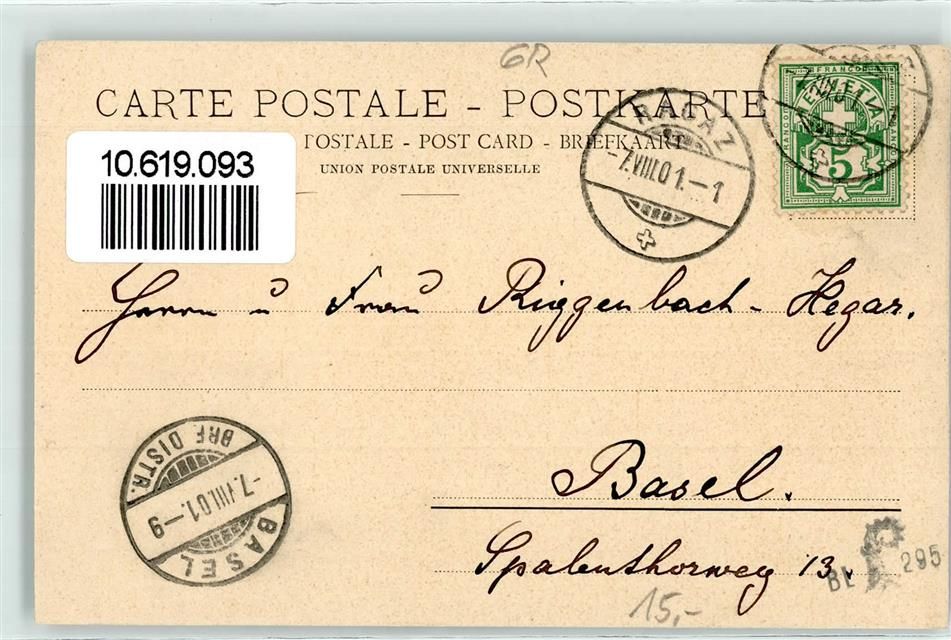 GR
CARTE POSTALE - POSTKARTE
POSTALE - POST CARD - BRIEFKAART
UNION POSTALE UNIVERSELLE
10.619.093
RAGAZ
-7.VIII.01.-1
FRANCO
HELVETIA
5
Herrn u Frau Riggenbach-Hegar.
Basel.
Spalenthorweg 13.
BRF. DISTR.
-7.VIII.01.-9
BASEL
BL 295
15,-